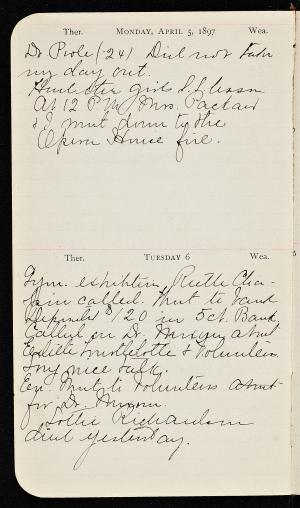 Ther. MONDAY, APRIL 5, 1897 Wea.
Dr Poole (24) Did not take
my day out.
girls S. S. lesson
At 12 P.M. Mrs. Packard
& I went down to the
Opera House fire.
Ther. TUESDAY 6 Wea.
Gym. exhibition, Ruth Cha-
pin called. Went to bank
Deposited $120 in 5ct. Bank.
Called on Dr. Mixon about
Edith & Volunteers.
long nice talk.
Eve. Went to Volunteers about
for Dr. Mixon.
Lottie Richardson
died yesterday.